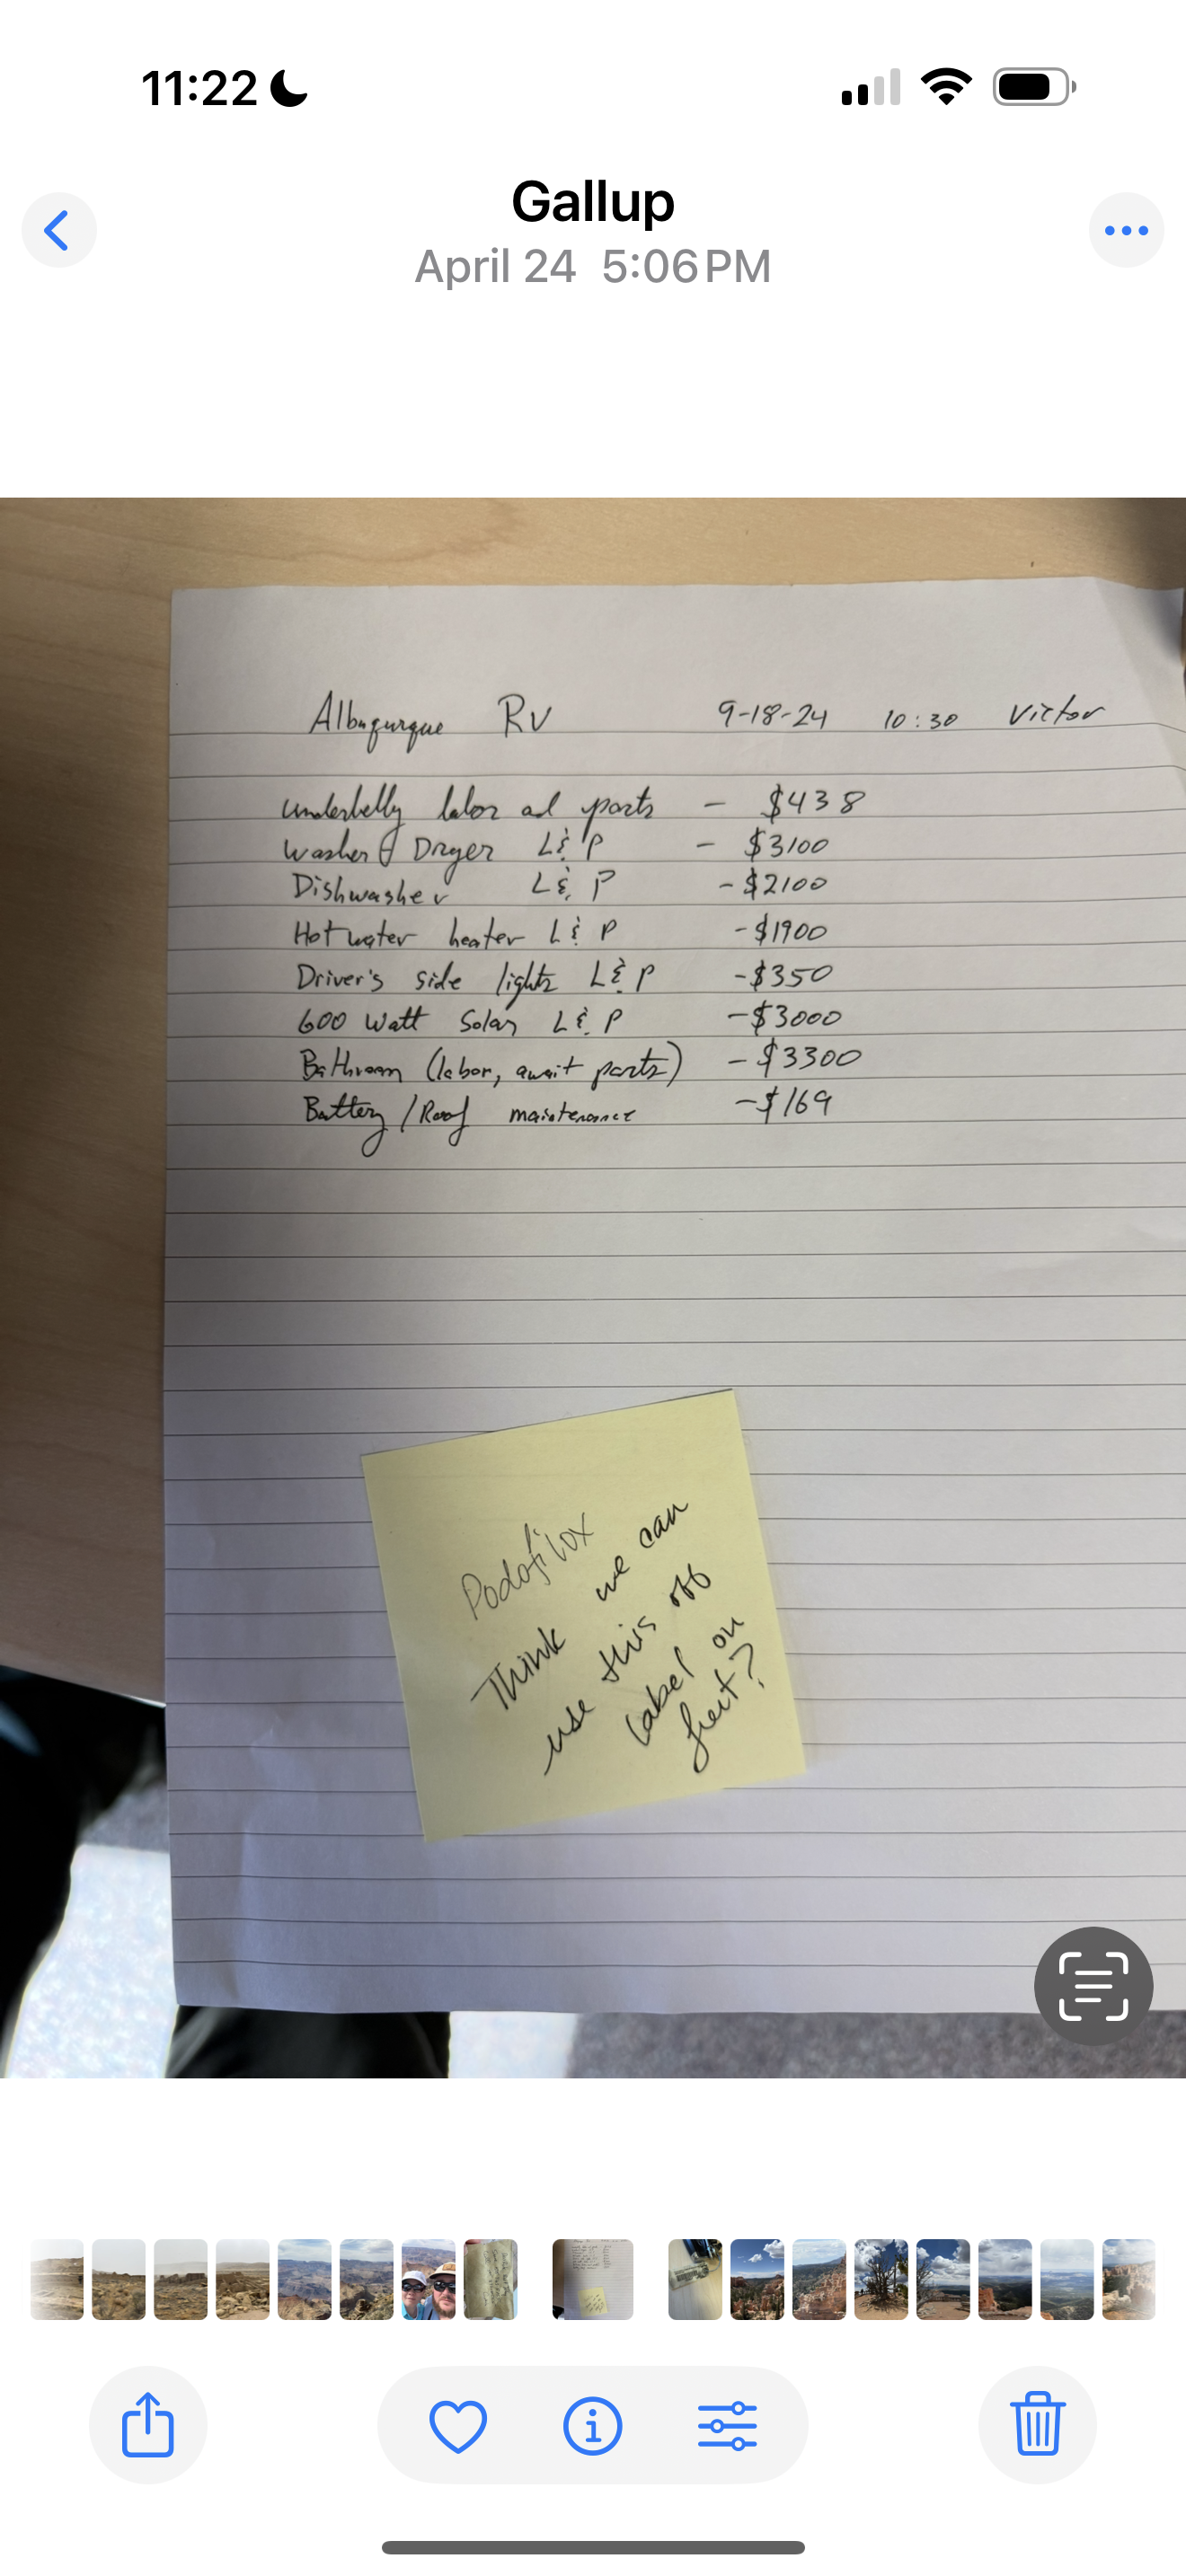 11:22
Gallup
April 24 5:06 PM
Albuqurque RV 9-18-24 10:30 Victor
underbelly labor ad parts - $438
Washer & Dryer L & P - $3100
Dishwasher L & P - $2100
Hot water heater L & P - $1900
Driver's side lights L & P - $350
600 Watt Solar L & P - $3000
Bathroom (labor, await parts) - $3300
Battery / Roof maintenance - $169
Podofilox
Think we can
use this off
label on
feet?